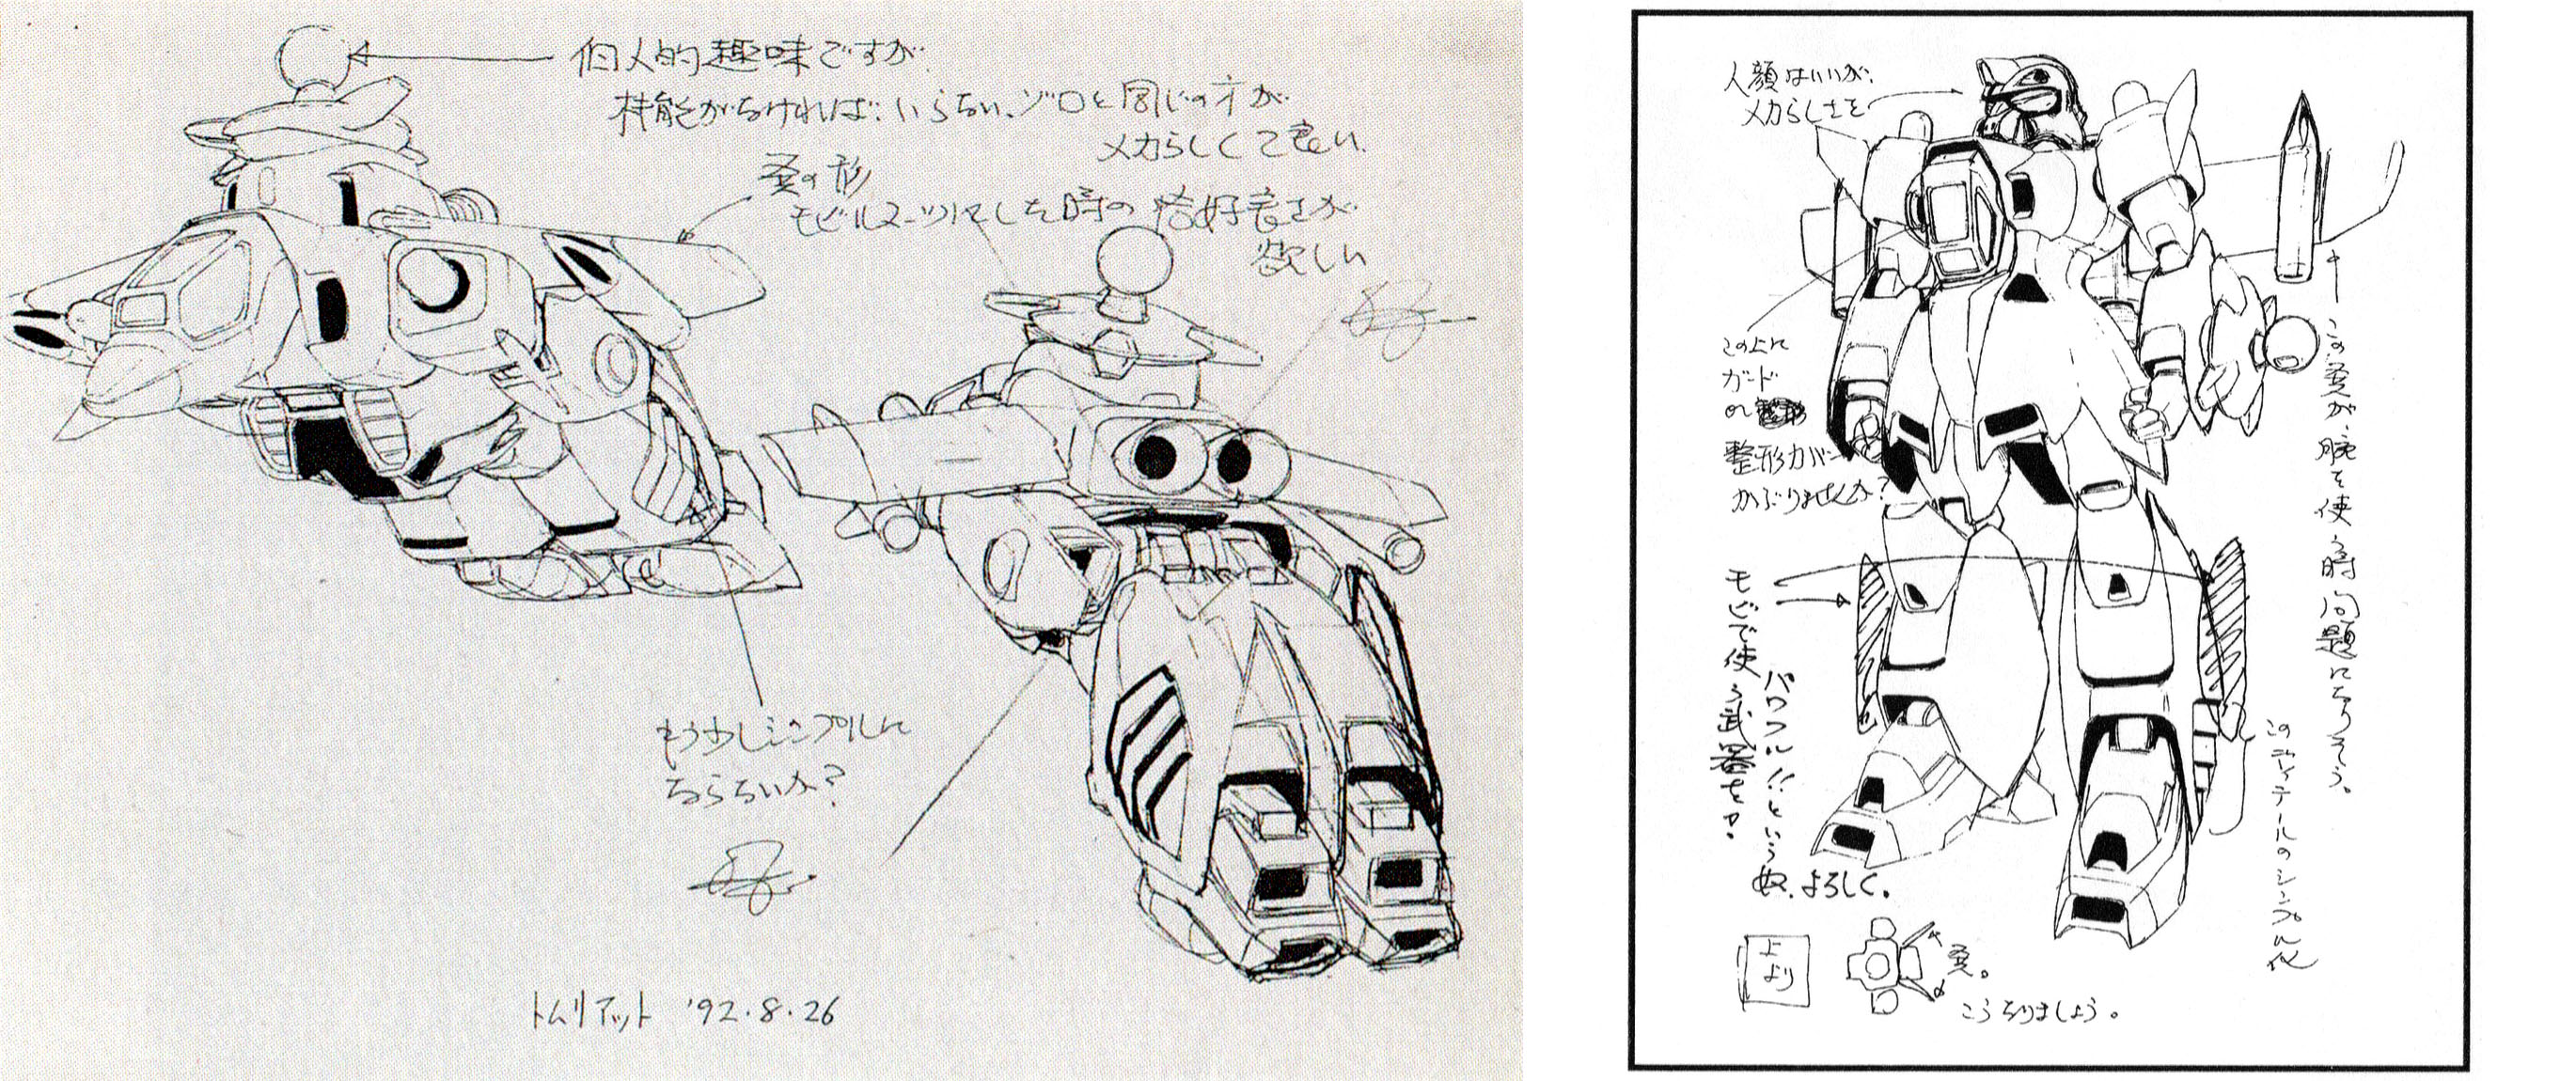 個人的趣味ですが、
機能がなければ、いらない、ゾロと同じの方が
メカらしくて良い。
翼の形
モビルスーツにした時の恰好良さが
欲しい
もう少しシンプルに
ならないか?
トムリアット '92.8.26
人顔はいいが、
メカらしさを
この上に
ガード
or
整形カバー
かぶりませんか?
モビで使う武器を?
パワフル!!という
奴、よろしく。
この翼が、腕を使う時問題になりそう。
このディテールのシンプル化
上
より
翼。
こうなりましょう。